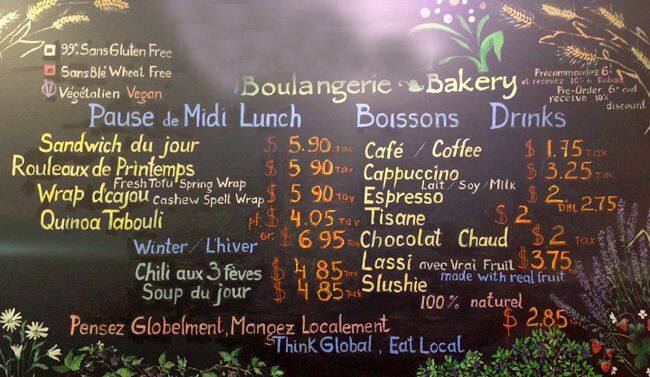 99% Sans Gluten Free
Sans Blé Wheat Free
Végétalien Vegan
Boulangerie Bakery
Précommandez 6+
et recevez 10% de Rabais
Pre-Order 6+ and
receive 10%
discount
Pause de Midi Lunch
Sandwich du jour $ 5.90 Tax
Rouleaux de Printemps $ 5 90 Tax
Fresh Tofu Spring Wrap
Wrap d'cajou Cashew Spelt Wrap $ 5 90 Tax
Quinoa Tabouli pt. $ 4.05 Tax
gr. $ 6 95 Tax
Winter / L'hiver
Chili aux 3 fèves $ 4 85 Tax
Soup du jour $ 4 85 Tax
Boissons Drinks
Café / Coffee $ 1.75 Tax
Cappuccino $ 3.25 Tax
Lait / Soy / Milk
Espresso $ 2 DBL 2.75
Tisane $ 2
Chocolat Chaud $ 2 Tax
Lassi avec Vrai Fruit $ 375
made with real fruit
Slushie
100% naturel
$ 2.85 Tax
Pensez Globelment, Mangez Localement
Think Global, Eat Local